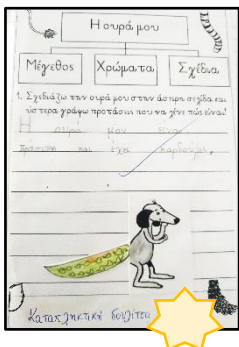 Η ουρά μου
Μέγεθος Χρώματα Σχέδια
1. Σχεδιάζω την ουρά μου στην άσπρη σελίδα και
ύστερα γράφω προτάσεις που να λένε πώς είναι!
Η ουρά μου είναι
πράσινη και έχει καρδούλες.
Καταπληκτική δουλίτσα